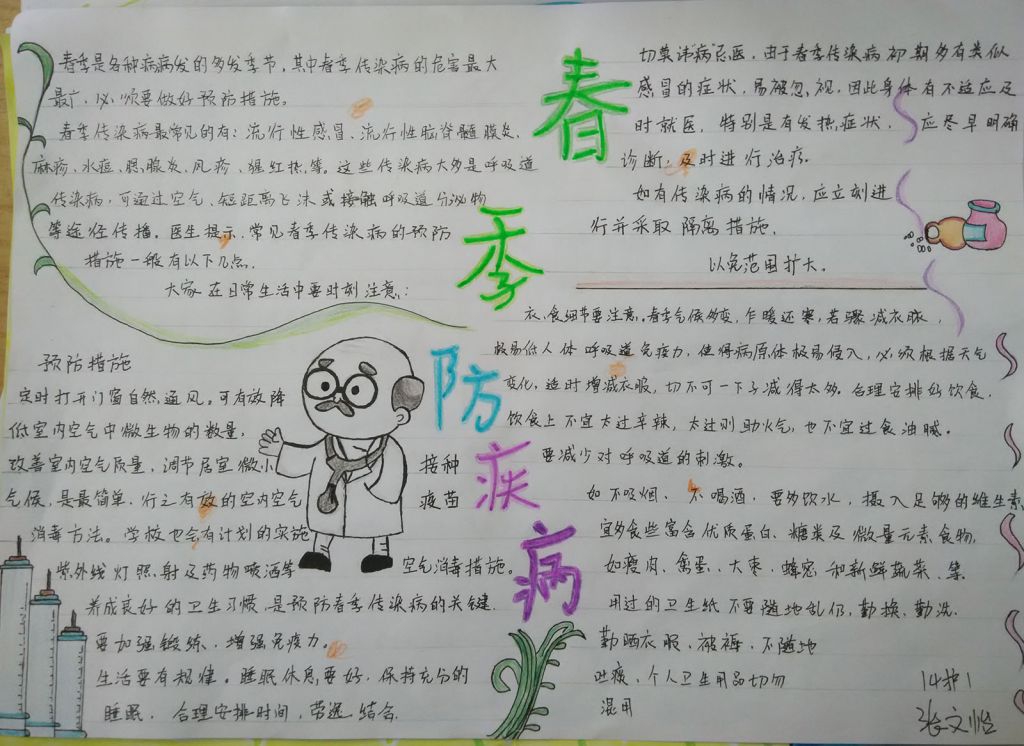 春季防疾病
春季是各种疾病发的多发季节,其中春季传染病的危害最大
最广,必须要做好预防措施。
春季传染病最常见的有:流行性感冒、流行性脑脊髓膜炎、
麻疹、水痘、腮腺炎、风疹、猩红热等。这些传染病大多是呼吸道
传染病,可通过空气、短距离飞沫或接触呼吸道分泌物
等途径传播。医生提示,常见春季传染病的预防
措施一般有以下几点.
大家在日常生活中要时刻注意:
预防措施
定时打开门窗自然通风。可有效降
低室内空气中微生物的数量,
改善室内空气质量,调节居室微小
气候,是最简单、行之有效的室内空气
消毒方法。学校也会有计划的实施
紫外线灯照射及药物喷洒等
空气消毒措施。
接种
疫苗
养成良好的卫生习惯,是预防春季传染病的关键.
要加强锻炼、增强免疫力。
生活要有规律。睡眠休息要好,保持充分的
睡眠、合理安排时间,劳逸结合.
切莫讳病忌医,由于春季传染病初期多有类似
感冒的症状,易被忽视,因此身体有不适应及
时就医,特别是有发热症状,应尽早明确
诊断,及时进行治疗.
如有传染病的情况,应立刻进
行并采取隔离措施,
以免范围扩大.
衣、食细节要注意。春季气候多变,乍暖还寒,若骤减衣服,
极易低人体呼吸道免疫力,使得病原体极易侵入,必须根据天气
变化,适时增减衣服,切不可一下子减得太多。合理安排好饮食,
饮食上不宜太过辛辣,太过则助火气,也不宜过食油腻.
要减少对呼吸道的刺激。
如不吸烟、不喝酒、要多饮水,摄入足够的维生素
宜多食些富含优质蛋白、糖类及微量元素食物,
如瘦肉、禽蛋、大枣、蜂蜜和新鲜蔬菜、等
用过的卫生纸不要随地乱仍,勤换、勤洗
勤晒衣服、被褥、不随地
吐痰,个人卫生用品切勿
混用
14护1
张文怡